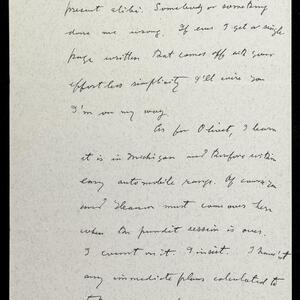 present alibi. Somebody or something
done me wrong. If ever I get a single
page written that comes off with your
effortless simplicity I'll wire you
I'm on my way.
As for Olivet, I learn
it is in Michigan and therefore within
easy automobile range. Of course you
and Eleanor must come over here
when the pundit session is over.
I count on it. I insist. I haven't
any immediate plans calculated to